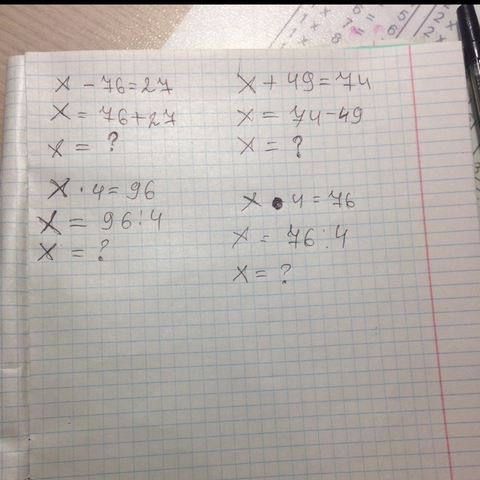 x - 76 = 27
x = 76 + 27
x = ?
x + 49 = 74
x = 74 - 49
x = ?
x · 4 = 96
x = 96 : 4
x = ?
x · 4 = 76
x = 76 : 4
x = ?